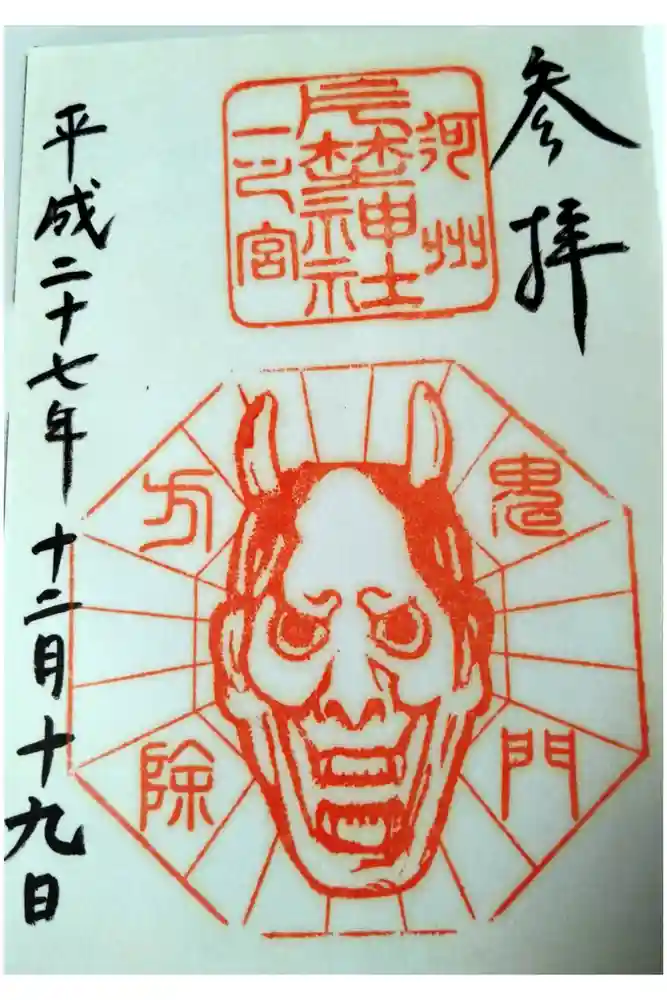 参拝
河州
片埜神社
一之宮
鬼門
方除
平成二十七年十二月十九日